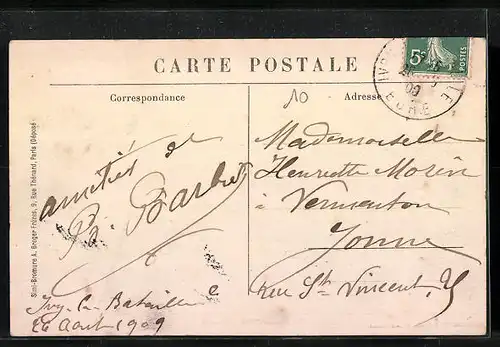 CARTE POSTALE
Correspondance
Adresse
10
5c
POSTES
EURE
09
Mademoiselle
Henriette Morin
à Vermenton
Yonne
Rue St Vincent,
amitiés de
B. Barbet
Ivry-la-Bataille
26 Août 1909
Simi-Bromure A. Breger Frères, 9, Rue Thénard, Paris (Déposé)